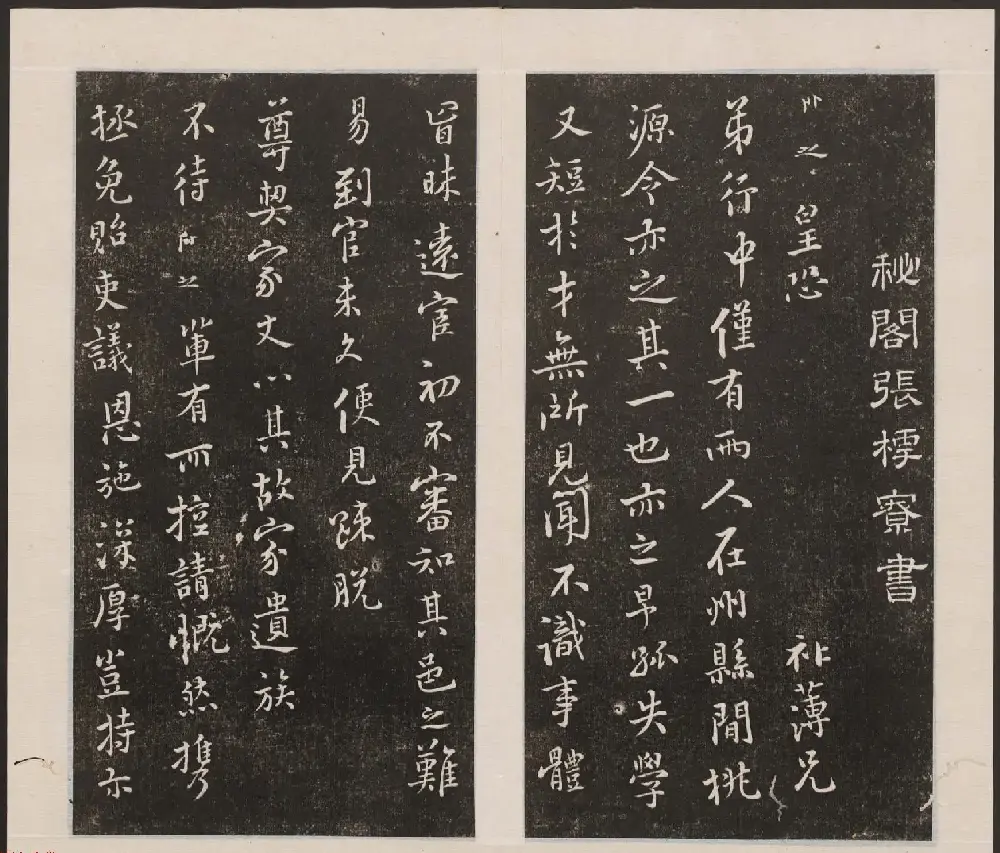 秘閣張樗寮書
即之皇恐 祚薄兄
弟行中僅有兩人在州縣間桃
源令亦之其一也亦之早孤失學
又短於才無所見聞不識事體
冒昧遠宦初不審知其邑之難
易到官未久便見踈脫
尊契家丈以其故家遺族
不待即之輩有而控請慨然擕
拯免貽吏議恩施深厚豈特亦